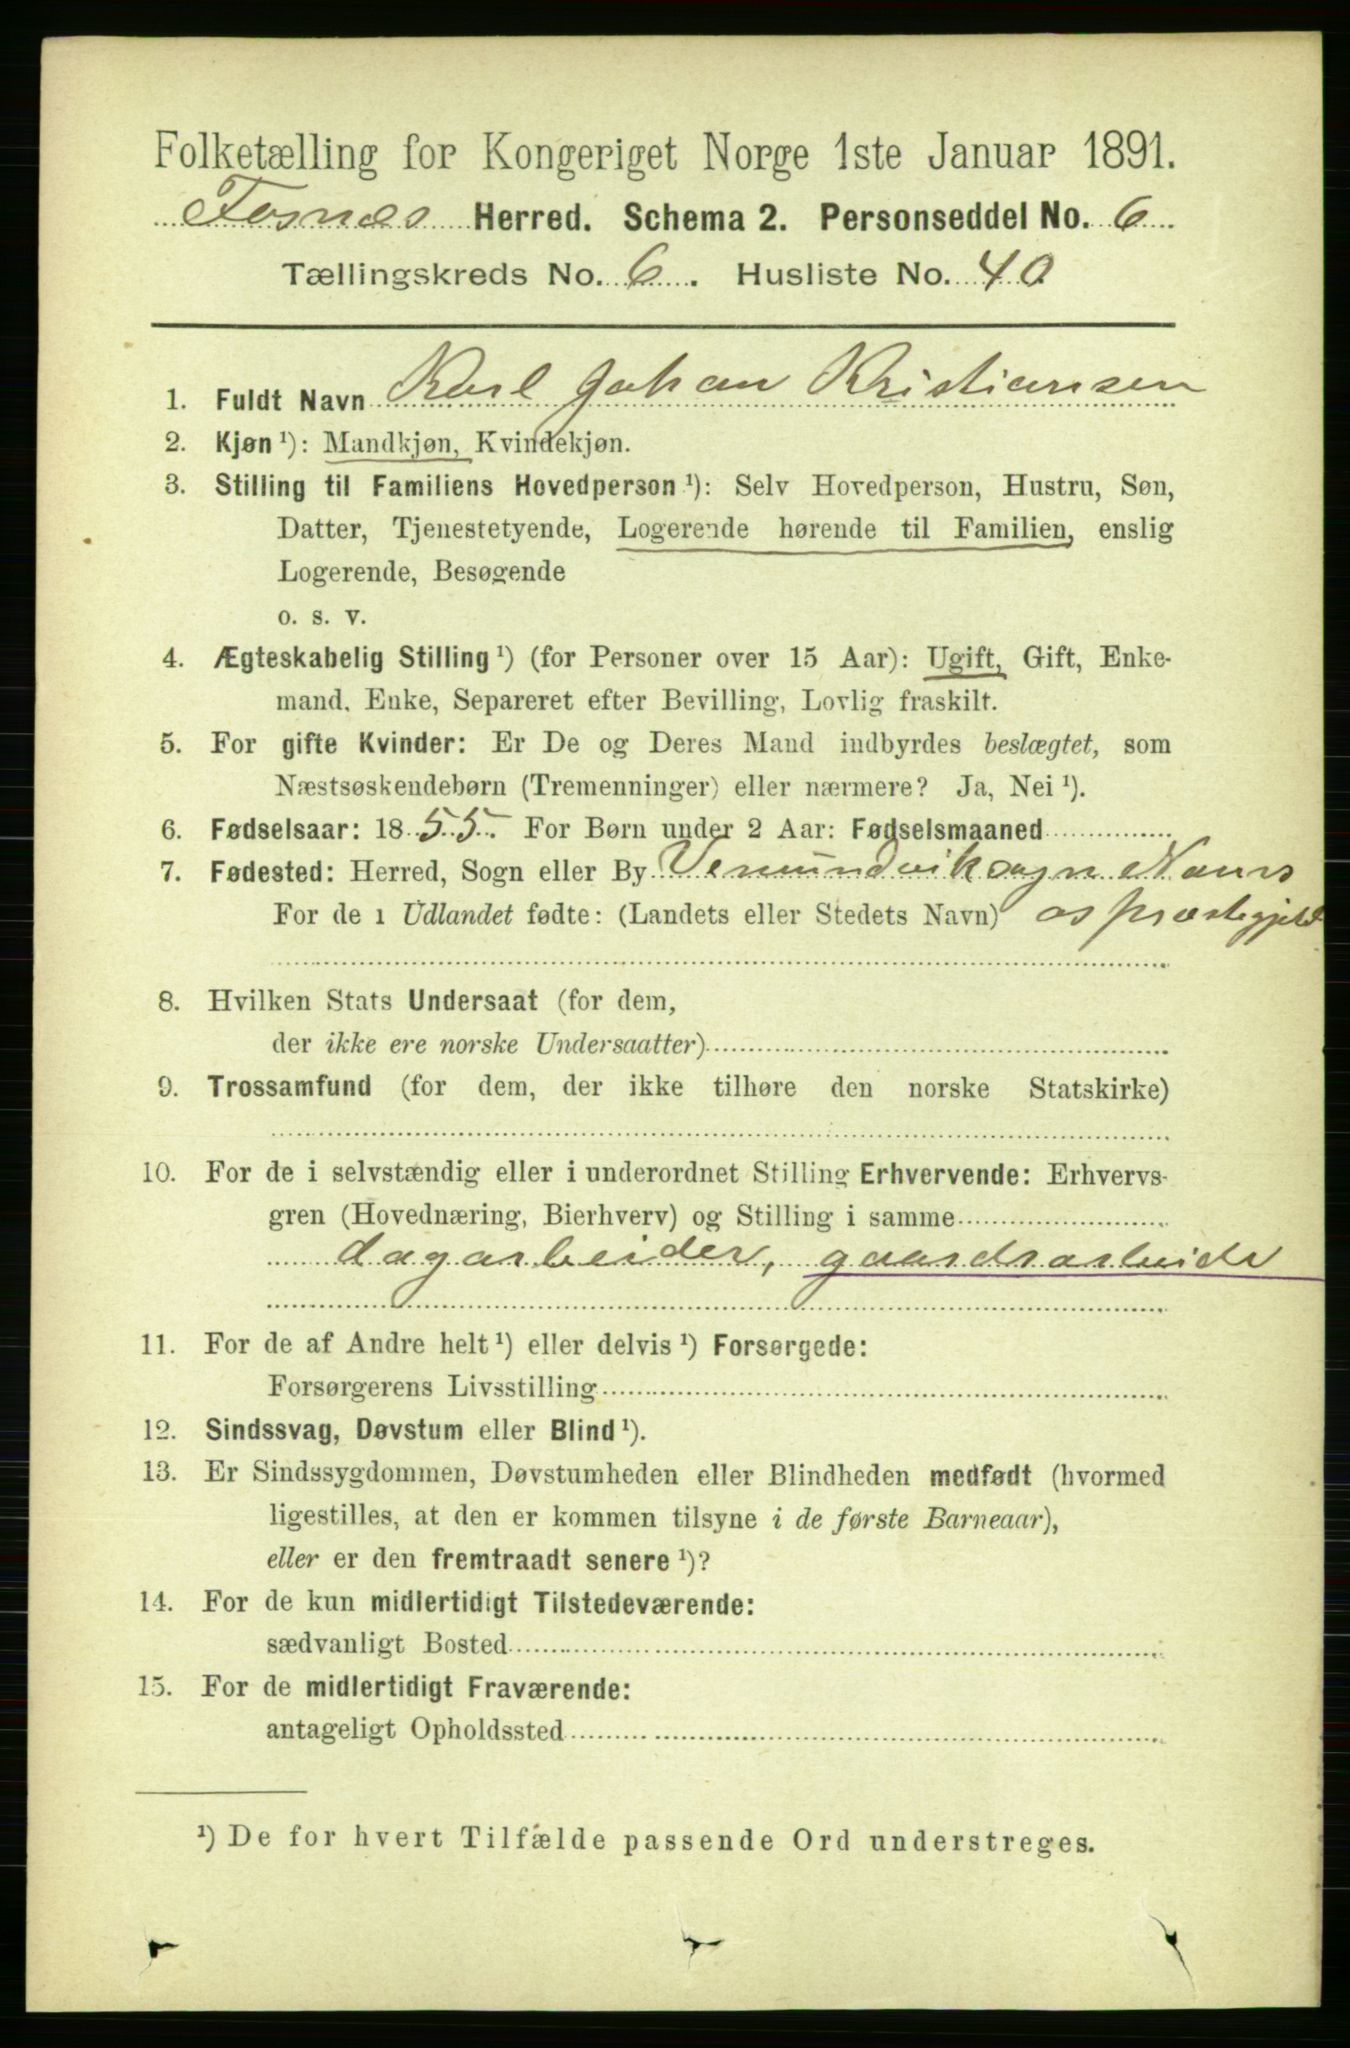 Folketælling for Kongeriget Norge 1ste Januar 1891.
Fosnæs Herred. Schema 2. Personseddel No. 6
Tællingskreds No. 6. Husliste No. 40
1. Fuldt Navn Karl Johan Kristiansen
2. Kjøn ¹): Mandkjøn, Kvindekjøn.
3. Stilling til Familiens Hovedperson ¹): Selv Hovedperson, Hustru, Søn,
Datter, Tjenestetyende, Logerende hørende til Familien, enslig
Logerende, Besøgende
o. s. v.
4. Ægteskabelig Stilling ¹) (for Personer over 15 Aar): Ugift, Gift, Enke-
mand, Enke, Separeret efter Bevilling, Lovlig fraskilt.
5. For gifte Kvinder: Er De og Deres Mand indbyrdes beslægtet, som
Næstsøskendebørn (Tremenninger) eller nærmere? Ja, Nei ¹).
6. Fødselsaar: 1855. For Børn under 2 Aar: Fødselsmaaned
7. Fødested: Herred, Sogn eller By Vemundvik sogn Nams
For de i Udlandet fødte: (Landets eller Stedets Navn) os præstegjeld
8. Hvilken Stats Undersaat (for dem,
der ikke ere norske Undersaatter)
9. Trossamfund (for dem, der ikke tilhøre den norske Statskirke)
10. For de i selvstændig eller i underordnet Stilling Erhvervende: Erhvervs-
gren (Hovednæring, Bierhverv) og Stilling i samme
dagarbeider, gaardsarbeide
11. For de af Andre helt ¹) eller delvis ¹) Forsørgede:
Forsørgerens Livsstilling
12. Sindssvag, Døvstum eller Blind ¹).
13. Er Sindssygdommen, Døvstumheden eller Blindheden medfødt (hvormed
ligestilles, at den er kommen tilsyne i de første Barneaar),
eller er den fremtraadt senere ¹)?
14. For de kun midlertidigt Tilstedeværende:
sædvanligt Bosted
15. For de midlertidigt Fraværende:
antageligt Opholdssted
¹) De for hvert Tilfælde passende Ord understreges.